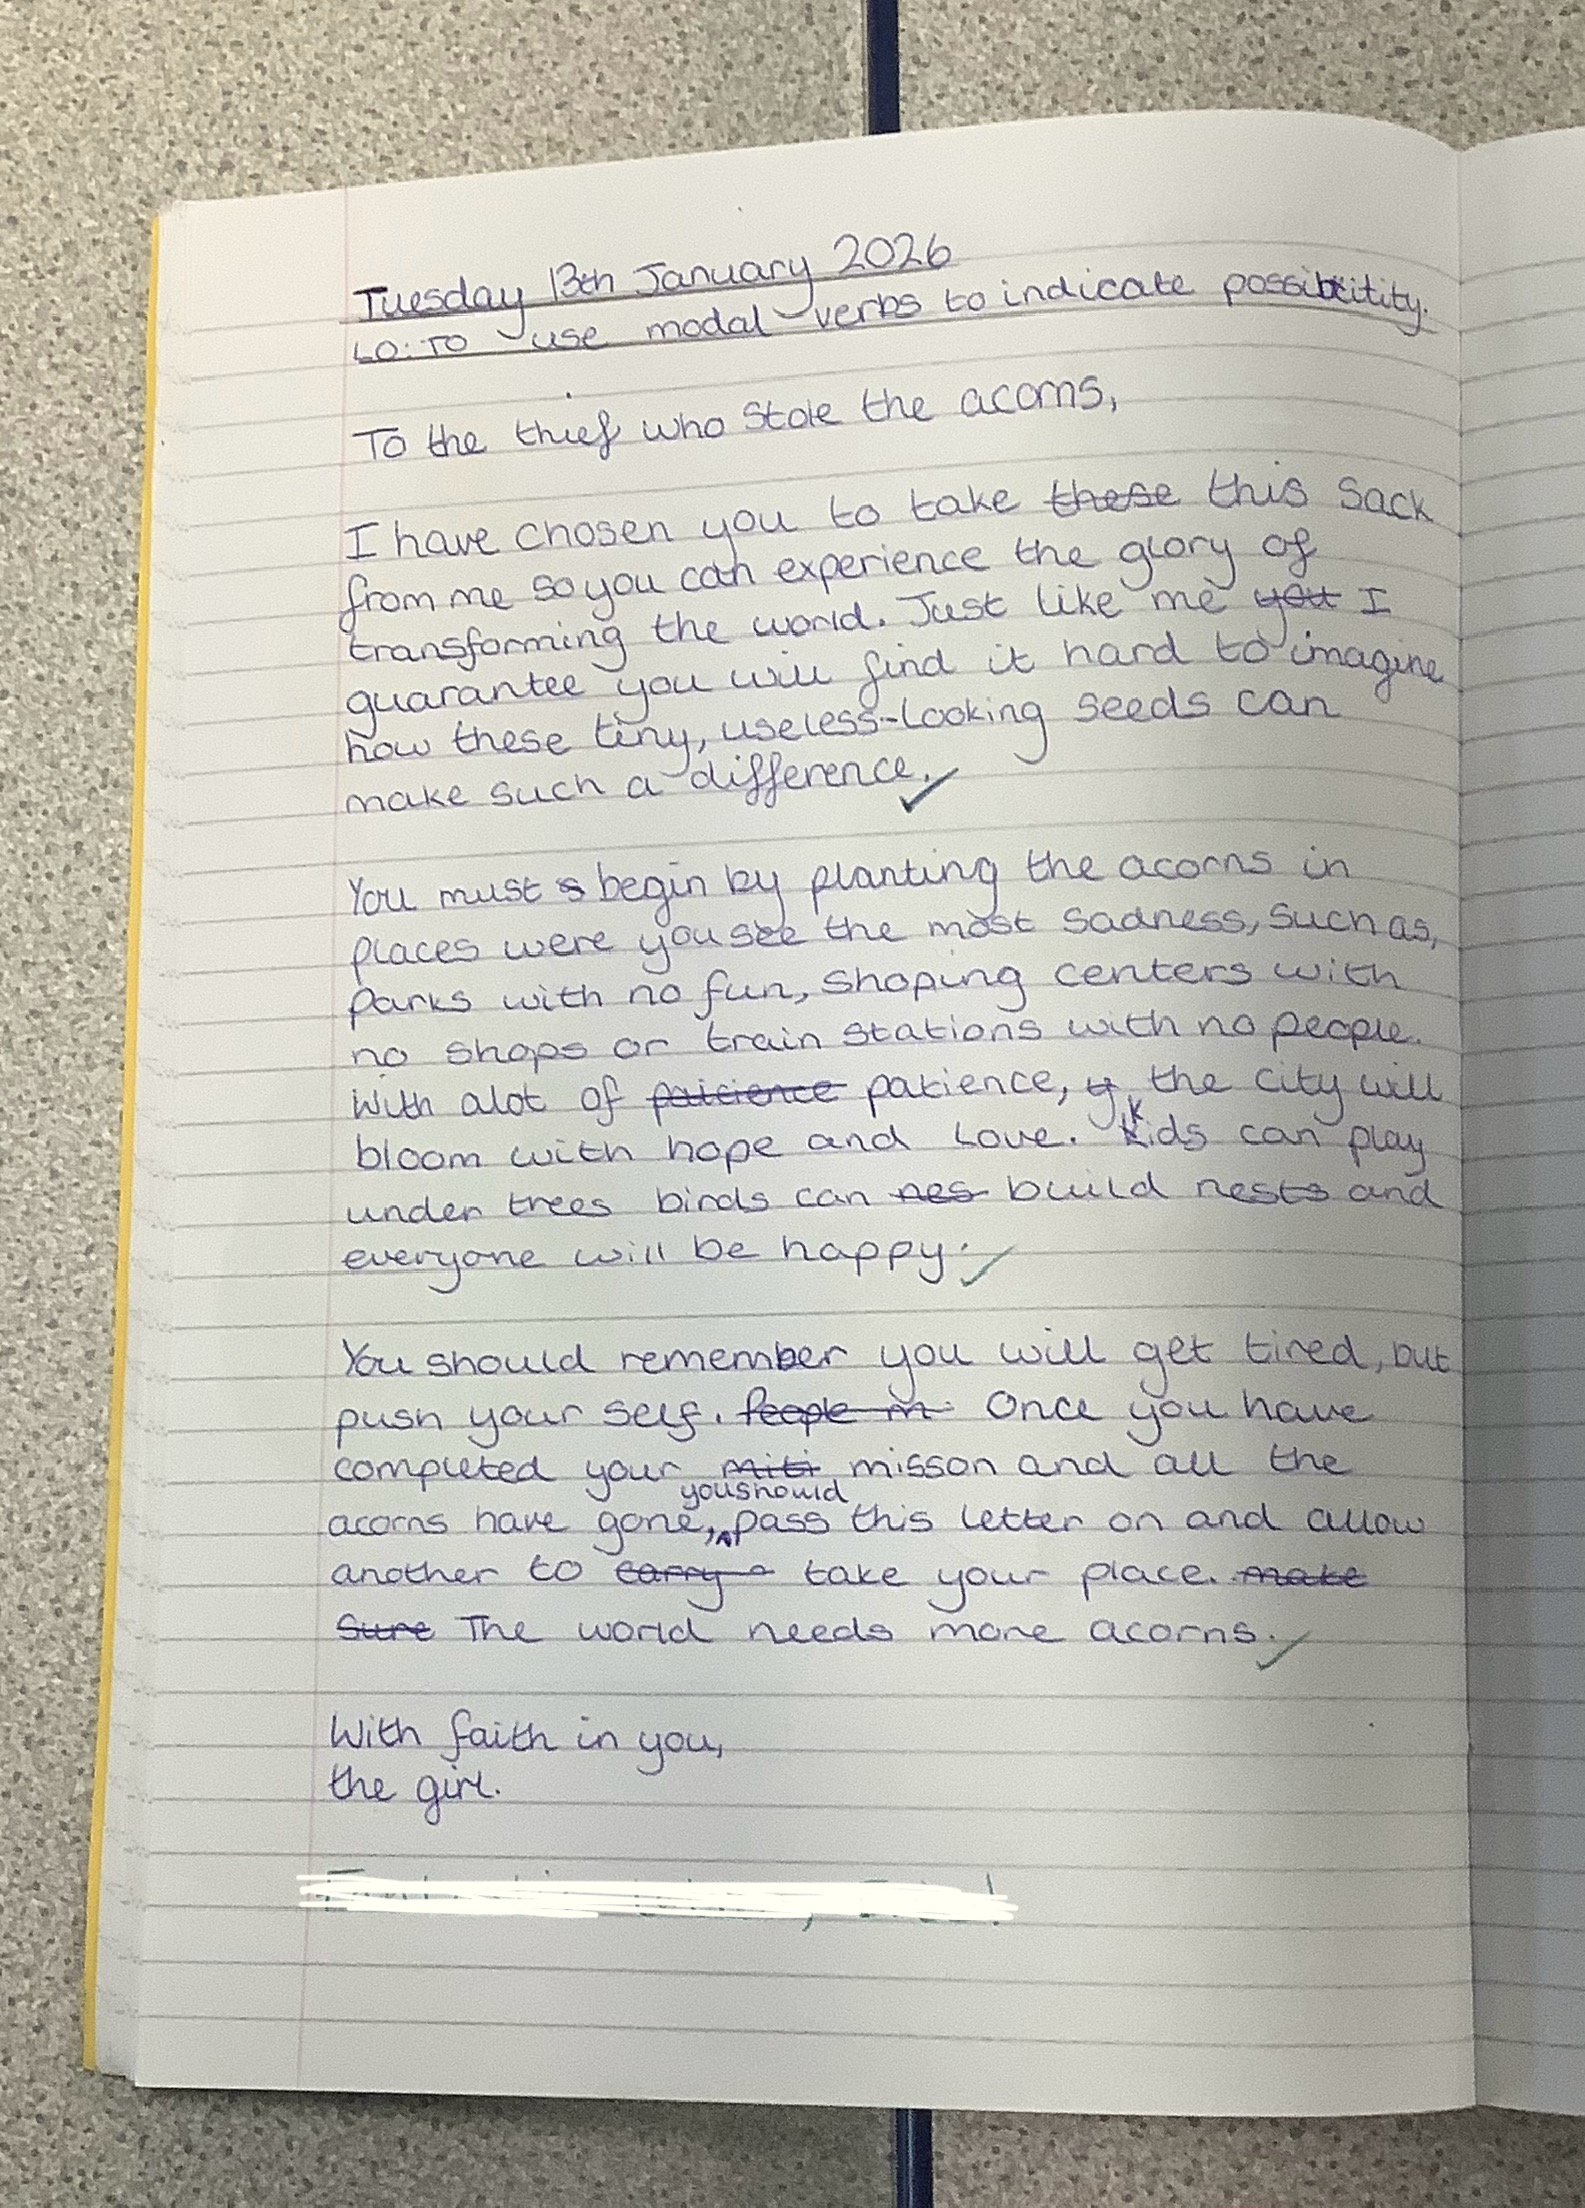 Tuesday 13th January 2026
LO: To use modal verbs to indicate possibility.
To the thief who stole the acorns,
I have chosen you to take these this sack
from me so you can experience the glory of
transforming the world. Just like me you I
guarantee you will find it hard to imagine
how these tiny, useless-looking seeds can
make such a difference.
You must s begin by planting the acorns in
places were you see the most sadness, such as,
parks with no fun, shoping centers with
no shops or train stations with no people.
With alot of paicience patience, y the city will
bloom with hope and love. Kids can play
under trees birds can nes build nests and
everyone will be happy.
You should remember you will get tired, but
push your self. People in Once you have
completed your miti misson and all the
you should
acorns have gone, pass this letter on and allow
another to carry o take your place. make
sure The world needs more acorns.
With faith in you,
the girl.